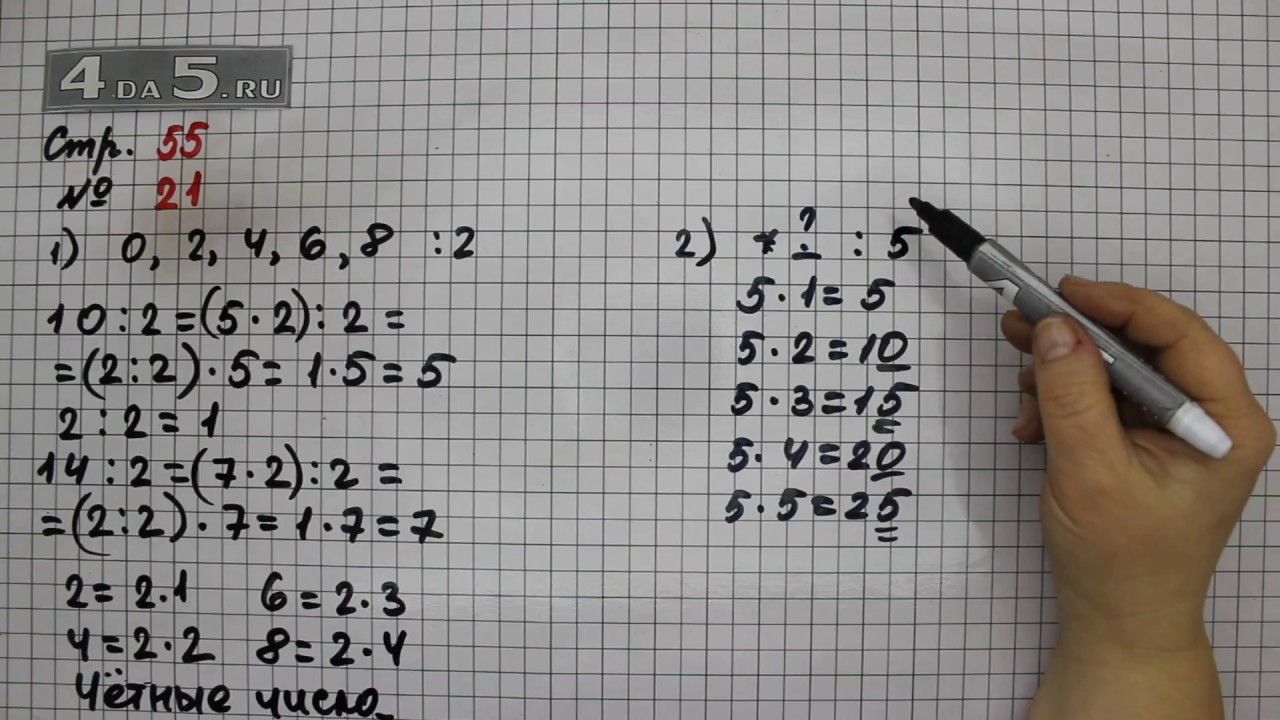 4DA5.RU
Стр. 55
№ 21
1) 0, 2, 4, 6, 8 :2
10:2=(5·2):2=
=(2:2)·5=1·5=5
2:2=1
14:2=(7·2):2=
=(2:2)·7=1·7=7
2=2·1 6=2·3
4=2·2 8=2·4
Чётные число
2) * ? : 5
5·1=5
5·2=10
5·3=15
5·4=20
5·5=25